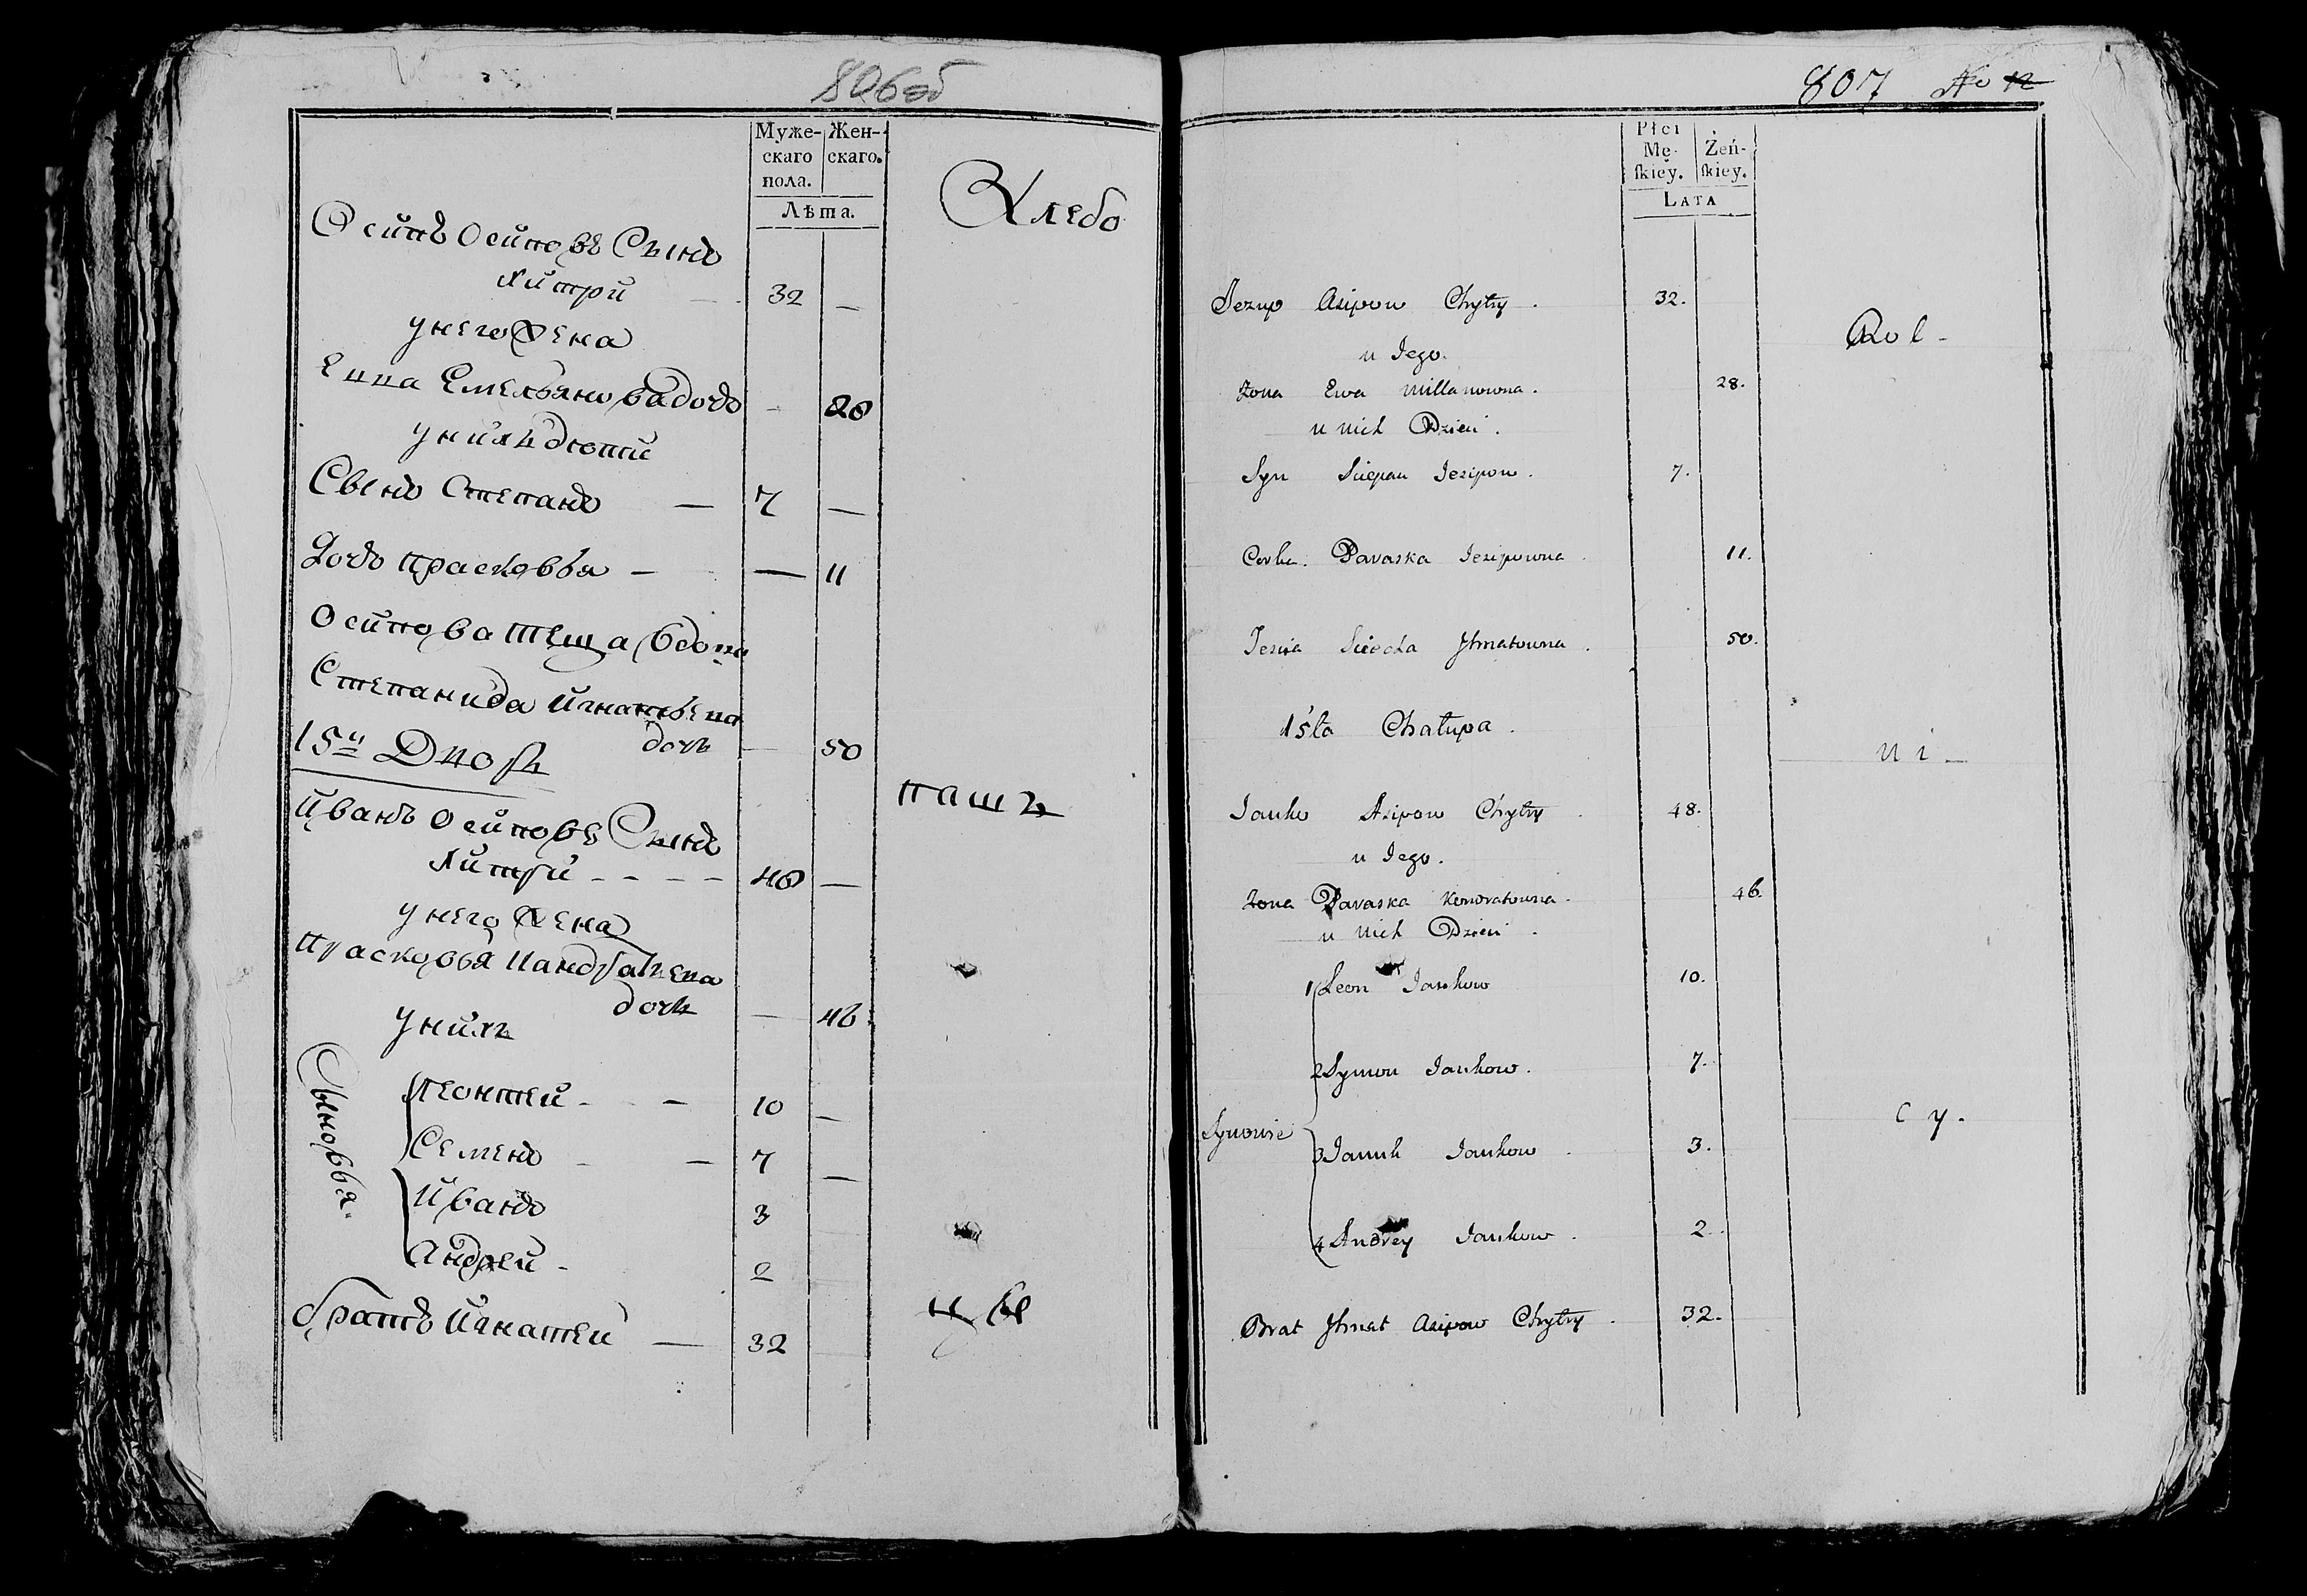 806об
Муже-
скаго
пола.
Жен-
скаго.
Лѣта.
Хлебо
Осипъ Осиповъ Сынъ
Хитри — 32 —
у него Жена
Евва Емельянова дочь - 28
у нихъ дети
Сынъ Степанъ — 7 —
Дочь Прасковья — — 11
Осипова теща вдова
Степанида Игнатьева
дочь — 50
15й Дворъ
паш
Иванъ Осиповъ Сынъ
Хитри - - - - 48 —
у него Жена
Прасковья Кандратьева
дочь — 46
у нихъ
Сыновья.
Леонтей - - 10 —
Семенъ - - 7 —
Иванъ 3
Андрей - 2
цы
братъ Игнатей — 32
807 No 12
Płci
Mę-
ſkiey.
Żeń-
ſkiey.
LATA
Jezup Asipow Chytry . 32.
Rol -
u Jego.
Zona Ewa Millanowna . 28.
u nich Dzieci .
Syn Sciepan Jezipow . 7.
Corka . Paraska Jezipowna . 11.
Ihnatowna . 50.
15ta Chałupa .
ni -
Janko Asipow Chytry . 48.
u Jego .
Zona Paraska Kondratowna . 46.
u Nich Dzieci .
1 Leon Jankow 10.
2 Symon Jankow . 7.
cy .
Synowie
3 Januk Jankow . 3.
4 Andrey Jankow . 2.
Brat Ihnat Asipow Chytry . 32.